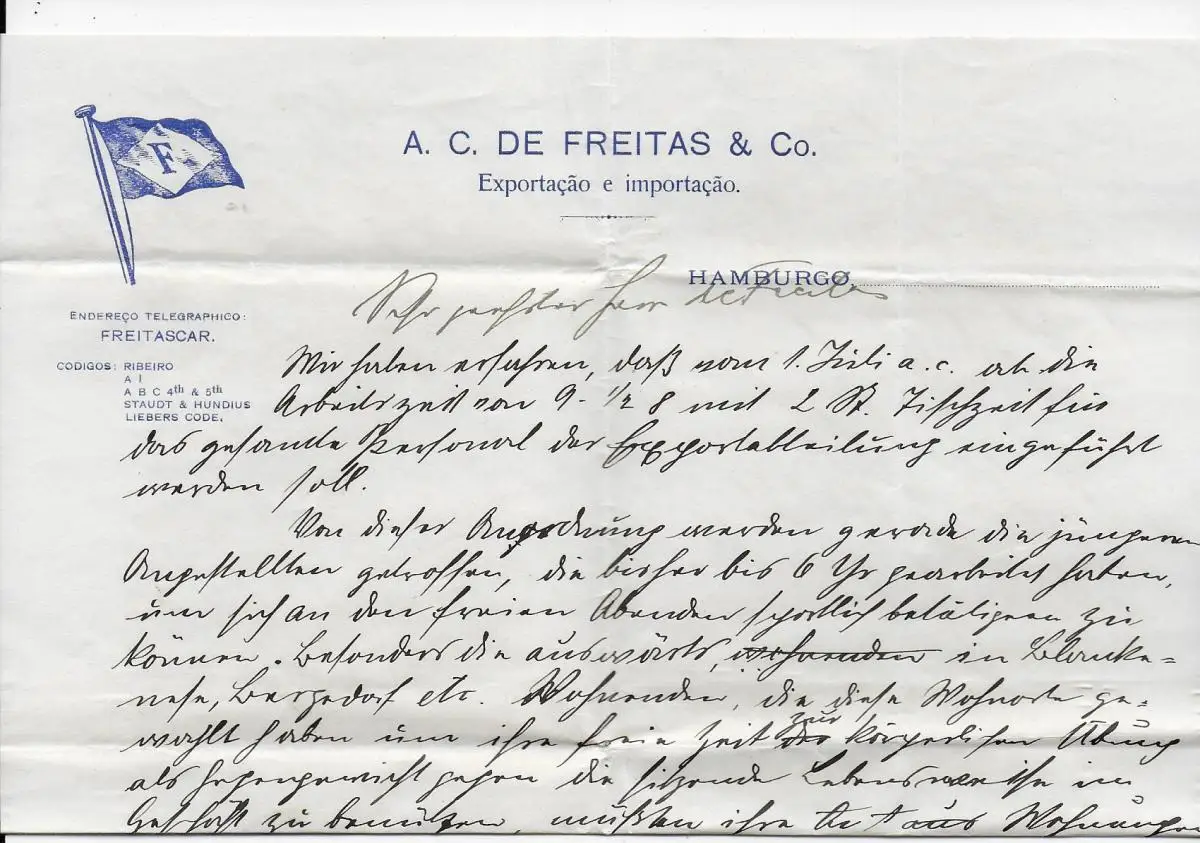 F
A. C. DE FREITAS & Co.
Exportação e importação.
HAMBURGO,
Sehr geehrter Herr de Freitas
ENDEREÇO TELEGRAPHICO:
FREITASCAR.
CODIGOS: RIBEIRO
A I
A B C 4th & 5th
STAUDT & HUNDIUS
LIEBERS CODE.
Wir haben erfahren, daß vom 1. Juli a. c. ab die
Arbeitszeit von 9 - 1/2 8 mit 2 St. Tischzeit für
das gesamte Personal der Exportabteilung eingeführt
werden soll.
Von dieser Anordnung werden gerade die jüngeren
Angestellten getroffen, die bisher bis 6 Uhr gearbeitet haben,
um sich an den freien Abenden sportlich betätigen zu
können. Besonders die auswärts, wohnenden in Blanke=
nese, Bergedorf etc. Wohnenden, die diese Wohnorte ge=
wählt haben um ihre freie Zeit zur körperlichen Übung
als Gegengewicht gegen die sitzende Lebensweise im
Geschäft zu benützen, müßten ihre aus Wohnungen